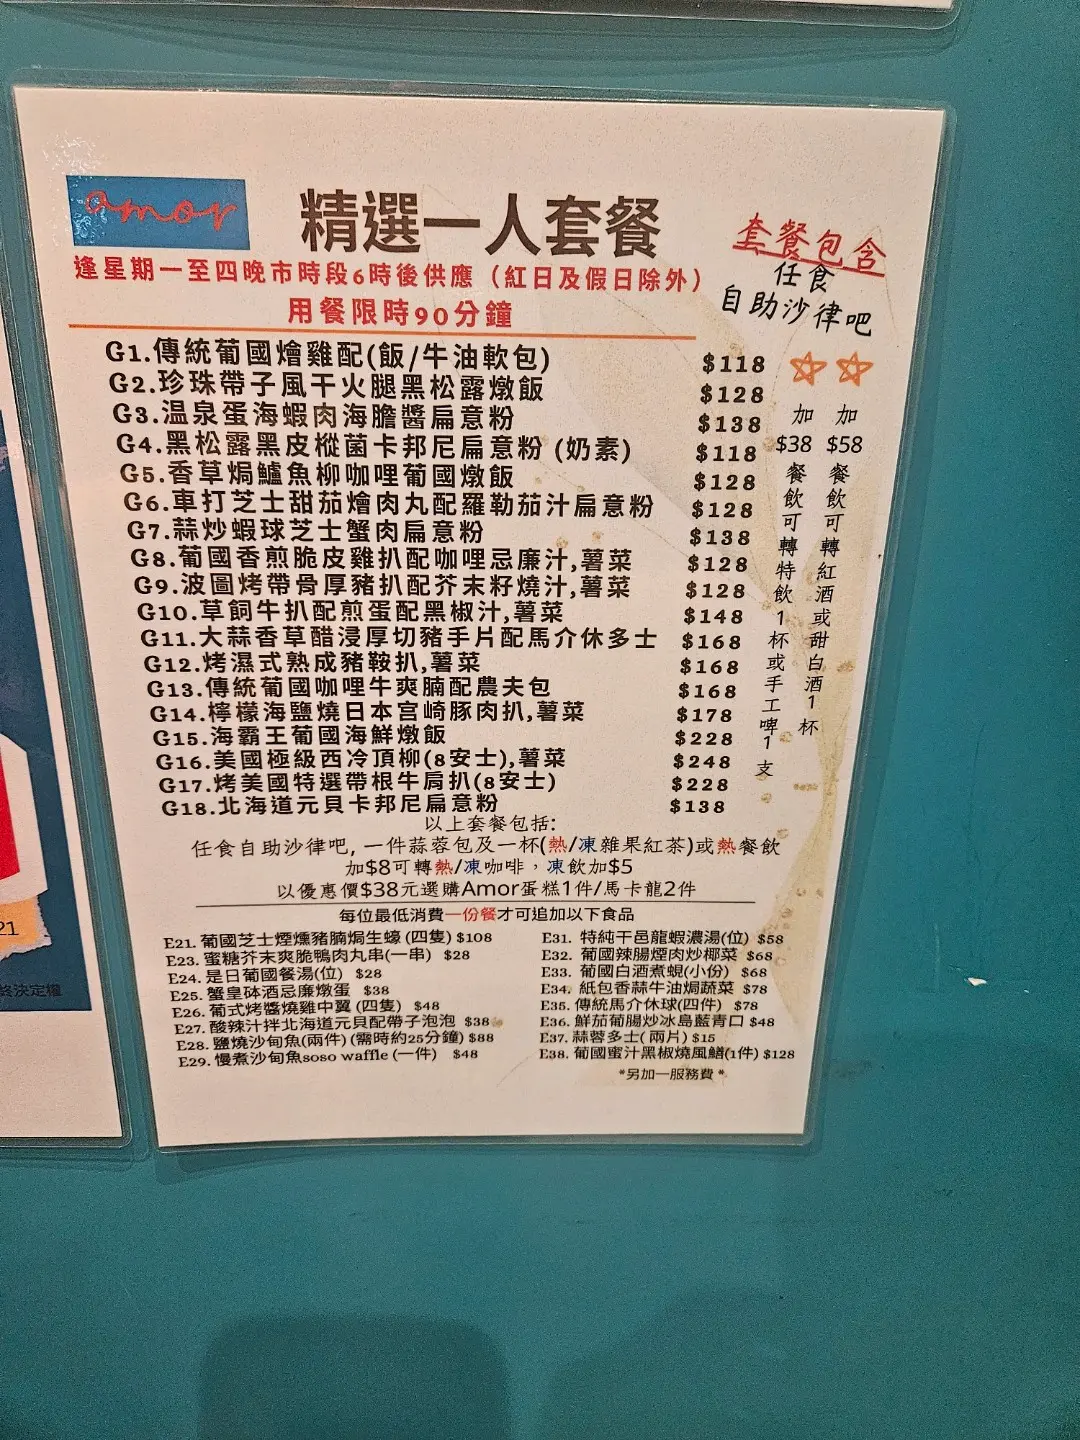 amor
精選一人套餐
逢星期一至四晚市時段6時後供應（紅日及假日除外）
用餐限時90分鐘
套餐包含
任食
自助沙律吧
G1.傳統葡國燴雞配(飯/牛油軟包) $118
G2.珍珠帶子風干火腿黑松露燉飯 $128
G3.温泉蛋海蝦肉海膽醬扁意粉 $138
G4.黑松露黑皮樅菌卡邦尼扁意粉 (奶素) $118
G5.香草焗鱸魚柳咖哩葡國燉飯 $128
G6.車打芝士甜茄燴肉丸配羅勒茄汁扁意粉 $128
G7.蒜炒蝦球芝士蟹肉扁意粉 $138
G8.葡國香煎脆皮雞扒配咖哩忌廉汁,薯菜 $128
G9.波圖烤帶骨厚豬扒配芥末籽燒汁,薯菜 $128
G10.草飼牛扒配煎蛋配黑椒汁,薯菜 $148
G11.大蒜香草醋浸厚切豬手片配馬介休多士 $168
G12.烤濕式熟成豬鞍扒,薯菜 $168
G13.傳統葡國咖哩牛爽腩配農夫包 $168
G14.檸檬海鹽燒日本宮崎豚肉扒,薯菜 $178
G15.海霸王葡國海鮮燉飯 $228
G16.美國極級西冷頂柳(8安士),薯菜 $248
G17.烤美國特選帶根牛肩扒(8安士) $228
G18.北海道元貝卡邦尼扁意粉 $138
加$38餐飲可轉特飲1杯或手工啤1支
加$58餐飲可轉紅酒或甜白酒1杯
以上套餐包括:
任食自助沙律吧, 一件蒜蓉包及一杯(熱/凍雜果紅茶)或熱餐飲
加$8可轉熱/凍咖啡，凍飲加$5
以優惠價$38元選購Amor蛋糕1件/馬卡龍2件
每位最低消費一份餐才可追加以下食品
E21. 葡國芝士煙燻豬腩焗生蠔 (四隻) $108
E23. 蜜糖芥末爽脆鴨肉丸串(一串) $28
E24. 是日葡國餐湯(位) $28
E25. 蟹皇砵酒忌廉燉蛋 $38
E26. 葡式烤醬燒雞中翼 (四隻) $48
E27. 酸辣汁拌北海道元貝配帶子泡泡 $38
E28. 鹽燒沙甸魚(兩件) (需時約25分鐘) $88
E29. 慢煮沙甸魚soso waffle (一件) $48
E31. 特純干邑龍蝦濃湯(位) $58
E32. 葡國辣腸煙肉炒椰菜 $68
E33. 葡國白酒煮蜆(小份) $68
E34. 紙包香蒜牛油焗蔬菜 $78
E35. 傳統馬介休球(四件) $78
E36. 鮮茄葡腸炒冰島藍青口 $48
E37. 蒜蓉多士( 兩片) $15
E38. 葡國蜜汁黑椒燒風鱔(1件) $128
*另加一服務費 *
21
終決定權